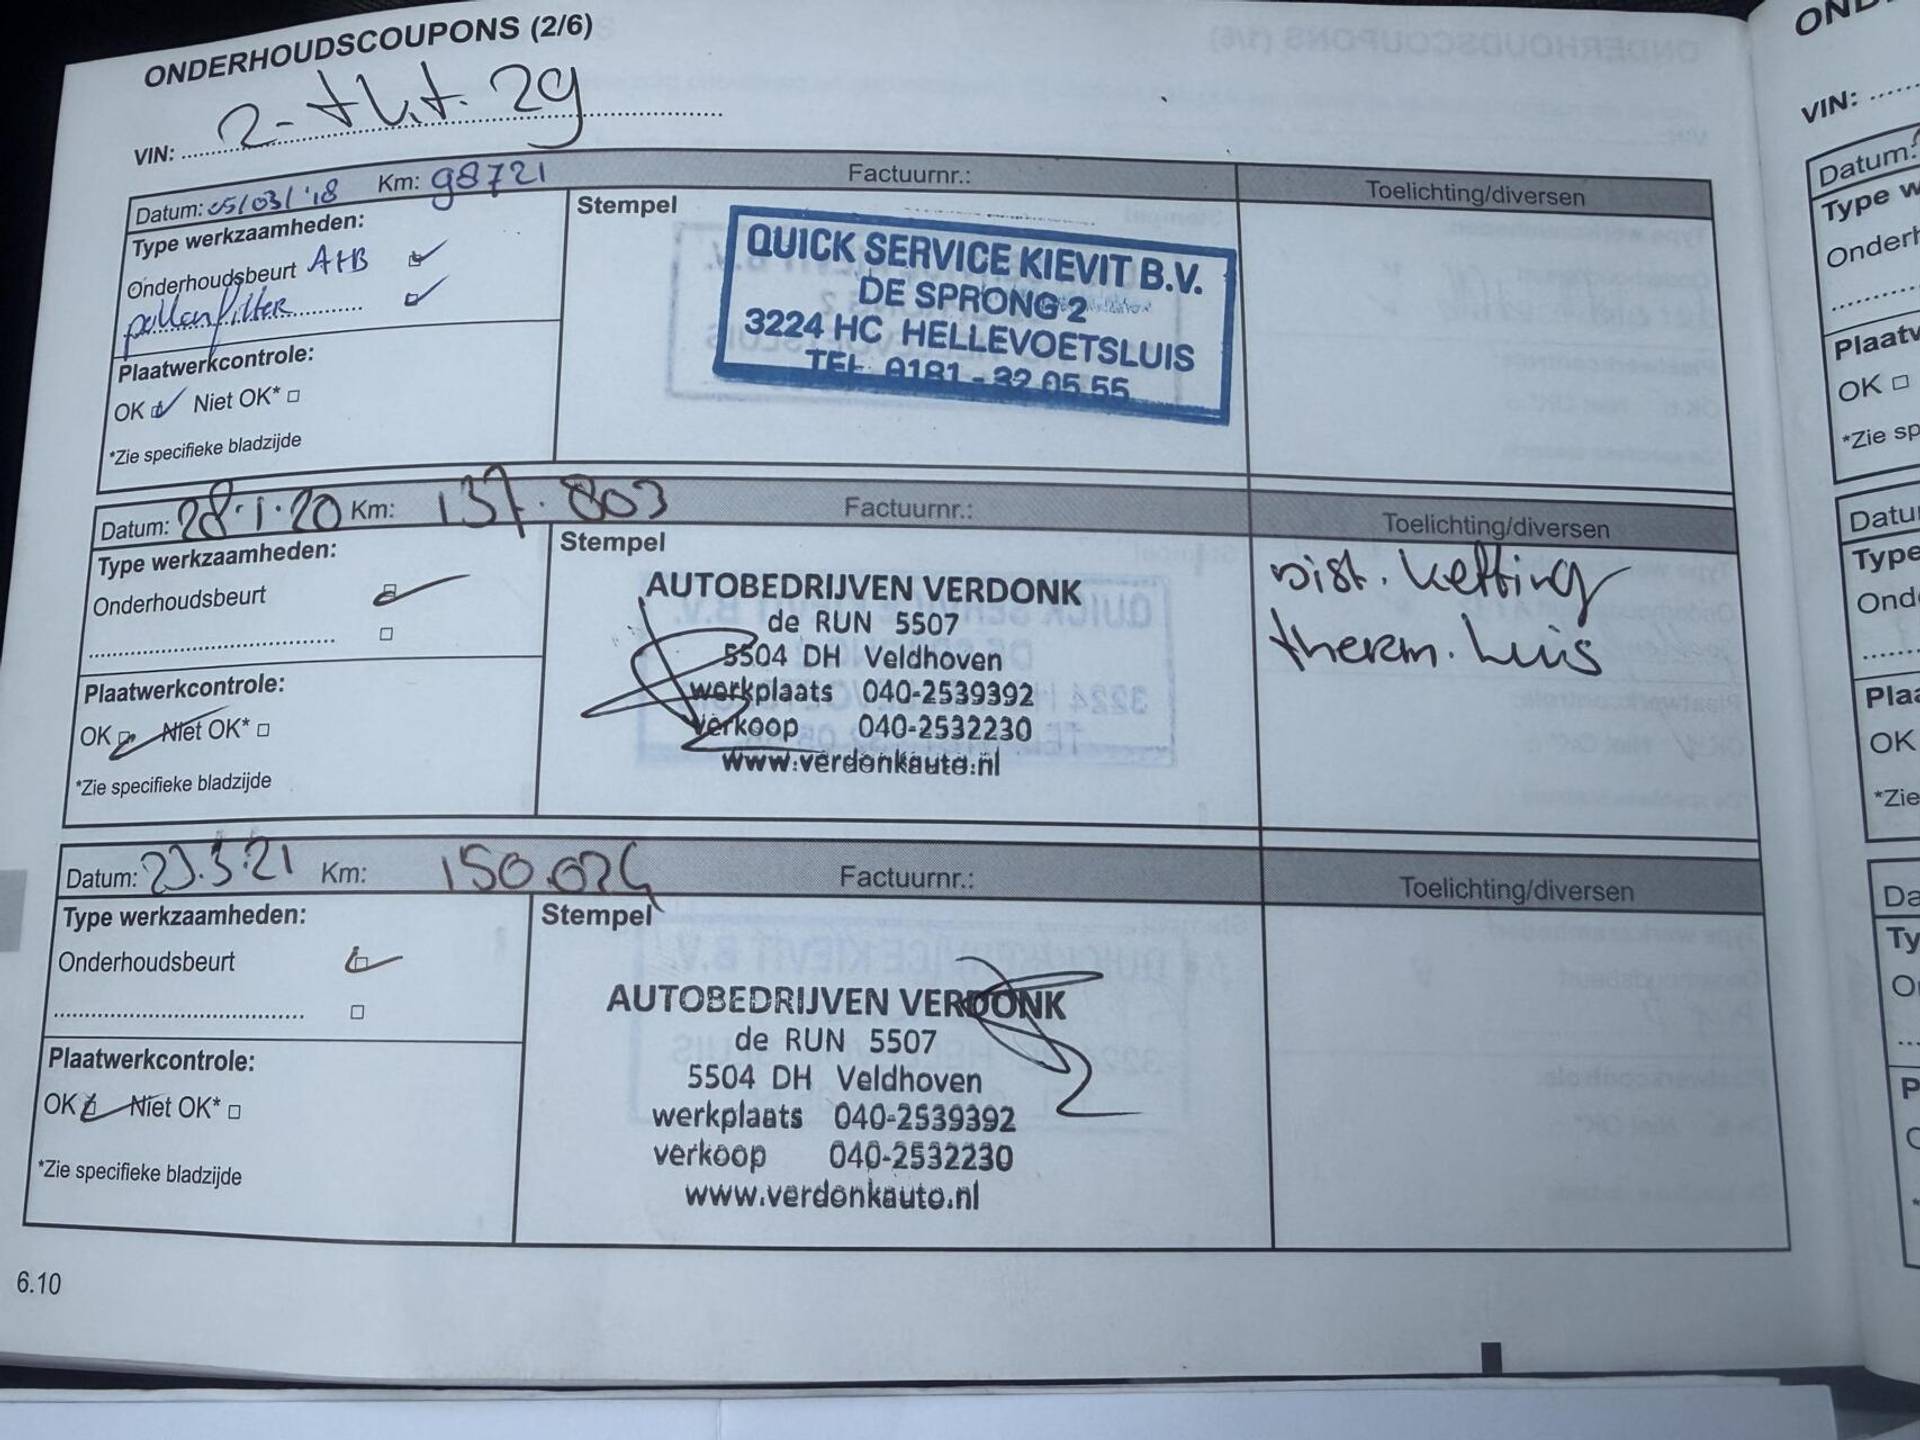 ONDERHOUDSCOUPONS (2/6)
VIN: 2-tkt-29
Datum: 05/03/'18 Km: 98721 Factuurnr.: Toelichting/diversen
Type werkzaamheden:
Onderhoudsbeurt A+B
pollenfilter
Plaatwerkcontrole:
OK Niet OK*
*Zie specifieke bladzijde
Stempel
QUICK SERVICE KIEVIT B.V.
DE SPRONG 2
3224 HC HELLEVOETSLUIS
TEL. 0181 - 32 05 55
Datum: 28.1.20 Km: 137.803 Factuurnr.: Toelichting/diversen
Type werkzaamheden:
Onderhoudsbeurt
Plaatwerkcontrole:
OK Niet OK*
*Zie specifieke bladzijde
Stempel
AUTOBEDRIJVEN VERDONK
de RUN 5507
5504 DH Veldhoven
werkplaats 040-2539392
verkoop 040-2532230
www.verdonkauto.nl
Dist. ketting
therm. huis
Datum: 23.3.21 Km: 150.024 Factuurnr.: Toelichting/diversen
Type werkzaamheden:
Onderhoudsbeurt
Plaatwerkcontrole:
OK Niet OK*
*Zie specifieke bladzijde
Stempel
AUTOBEDRIJVEN VERDONK
de RUN 5507
5504 DH Veldhoven
werkplaats 040-2539392
verkoop 040-2532230
www.verdonkauto.nl
6.10
VIN:
Datum:
Type
OK
*Zie
Type
OK
*Zie